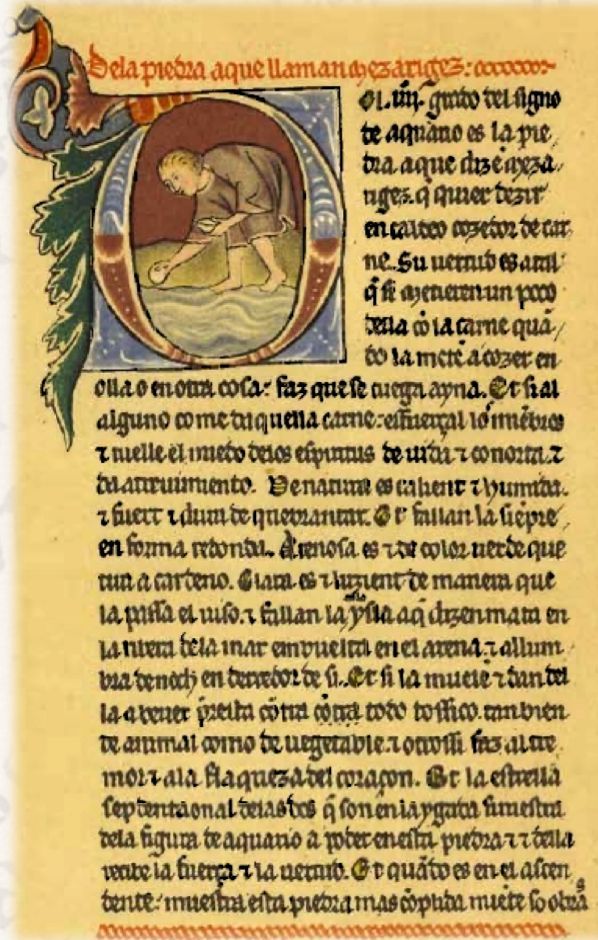 Dela piedra aque llaman mezariges:
Del .iiij. grado del signo
de aquario es la pie
dra aque dizẽ meza
riges. q̃ quier dezir
en caldeo cozedor de car
ne. Su uertud es atal
q̃ si metieren un poco
della cõ la carne quã
do la metẽ a cozer en
olla o en otra cosa: faz que se cuega ayna. Et si al
alguno come daquella carne: esfuerçal los miẽbros
⁊ tuelle el miedo delos espiritus de uida ⁊ conorta. ⁊
da atreuimiento. De natura es calient ⁊ humida.
⁊ fuert ⁊ dura de quebrantar. Et fallan la siẽpre
en forma redonda. Arenosa es ⁊ de color uerde que
tira a cardeno. Clara es ⁊ luzient de manera que
la passa el uiso. ⁊ fallan la ysla aq̃ dizen mata en
la riuera dela mar enbuelta en el arena. ⁊ allum
bra de noch en derredor de si. Et si la muelẽ ⁊ dan del
la a beuer presta cõtra cõtra todo tossico. tan bien
de animal como de uegetable. ⁊ otrossi faz al tre
mor ⁊ ala flaqueza del coraçon. Et la estrella
septentrional delas dos q̃ son en la siniestra
dela figura de aquario a poder en esta piedra ⁊ ⁊ della
recibe la fuerça ⁊ la uertud. Et quãdo es en el ascen
dente: muestra esta piedra mas cõplida miẽte so obras